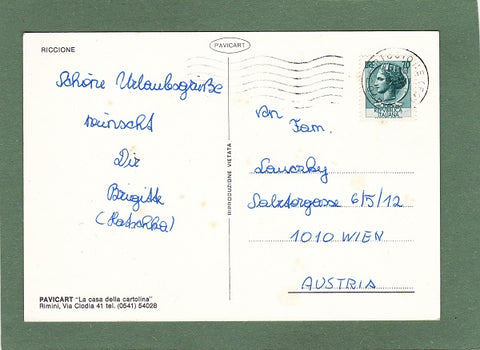 RICCIONE
PAVICART
Schöne Urlaubsgrüße
wünscht
Dir
Brigitte
(Hatschka)
RIPRODUZIONE VIETATA
An
Fam.
Salztorgasse 6/5/12
1010 WIEN
AUSTRIA
PAVICART "La casa della cartolina"
Rimini, Via Clodia 41 tel. (0541) 54028